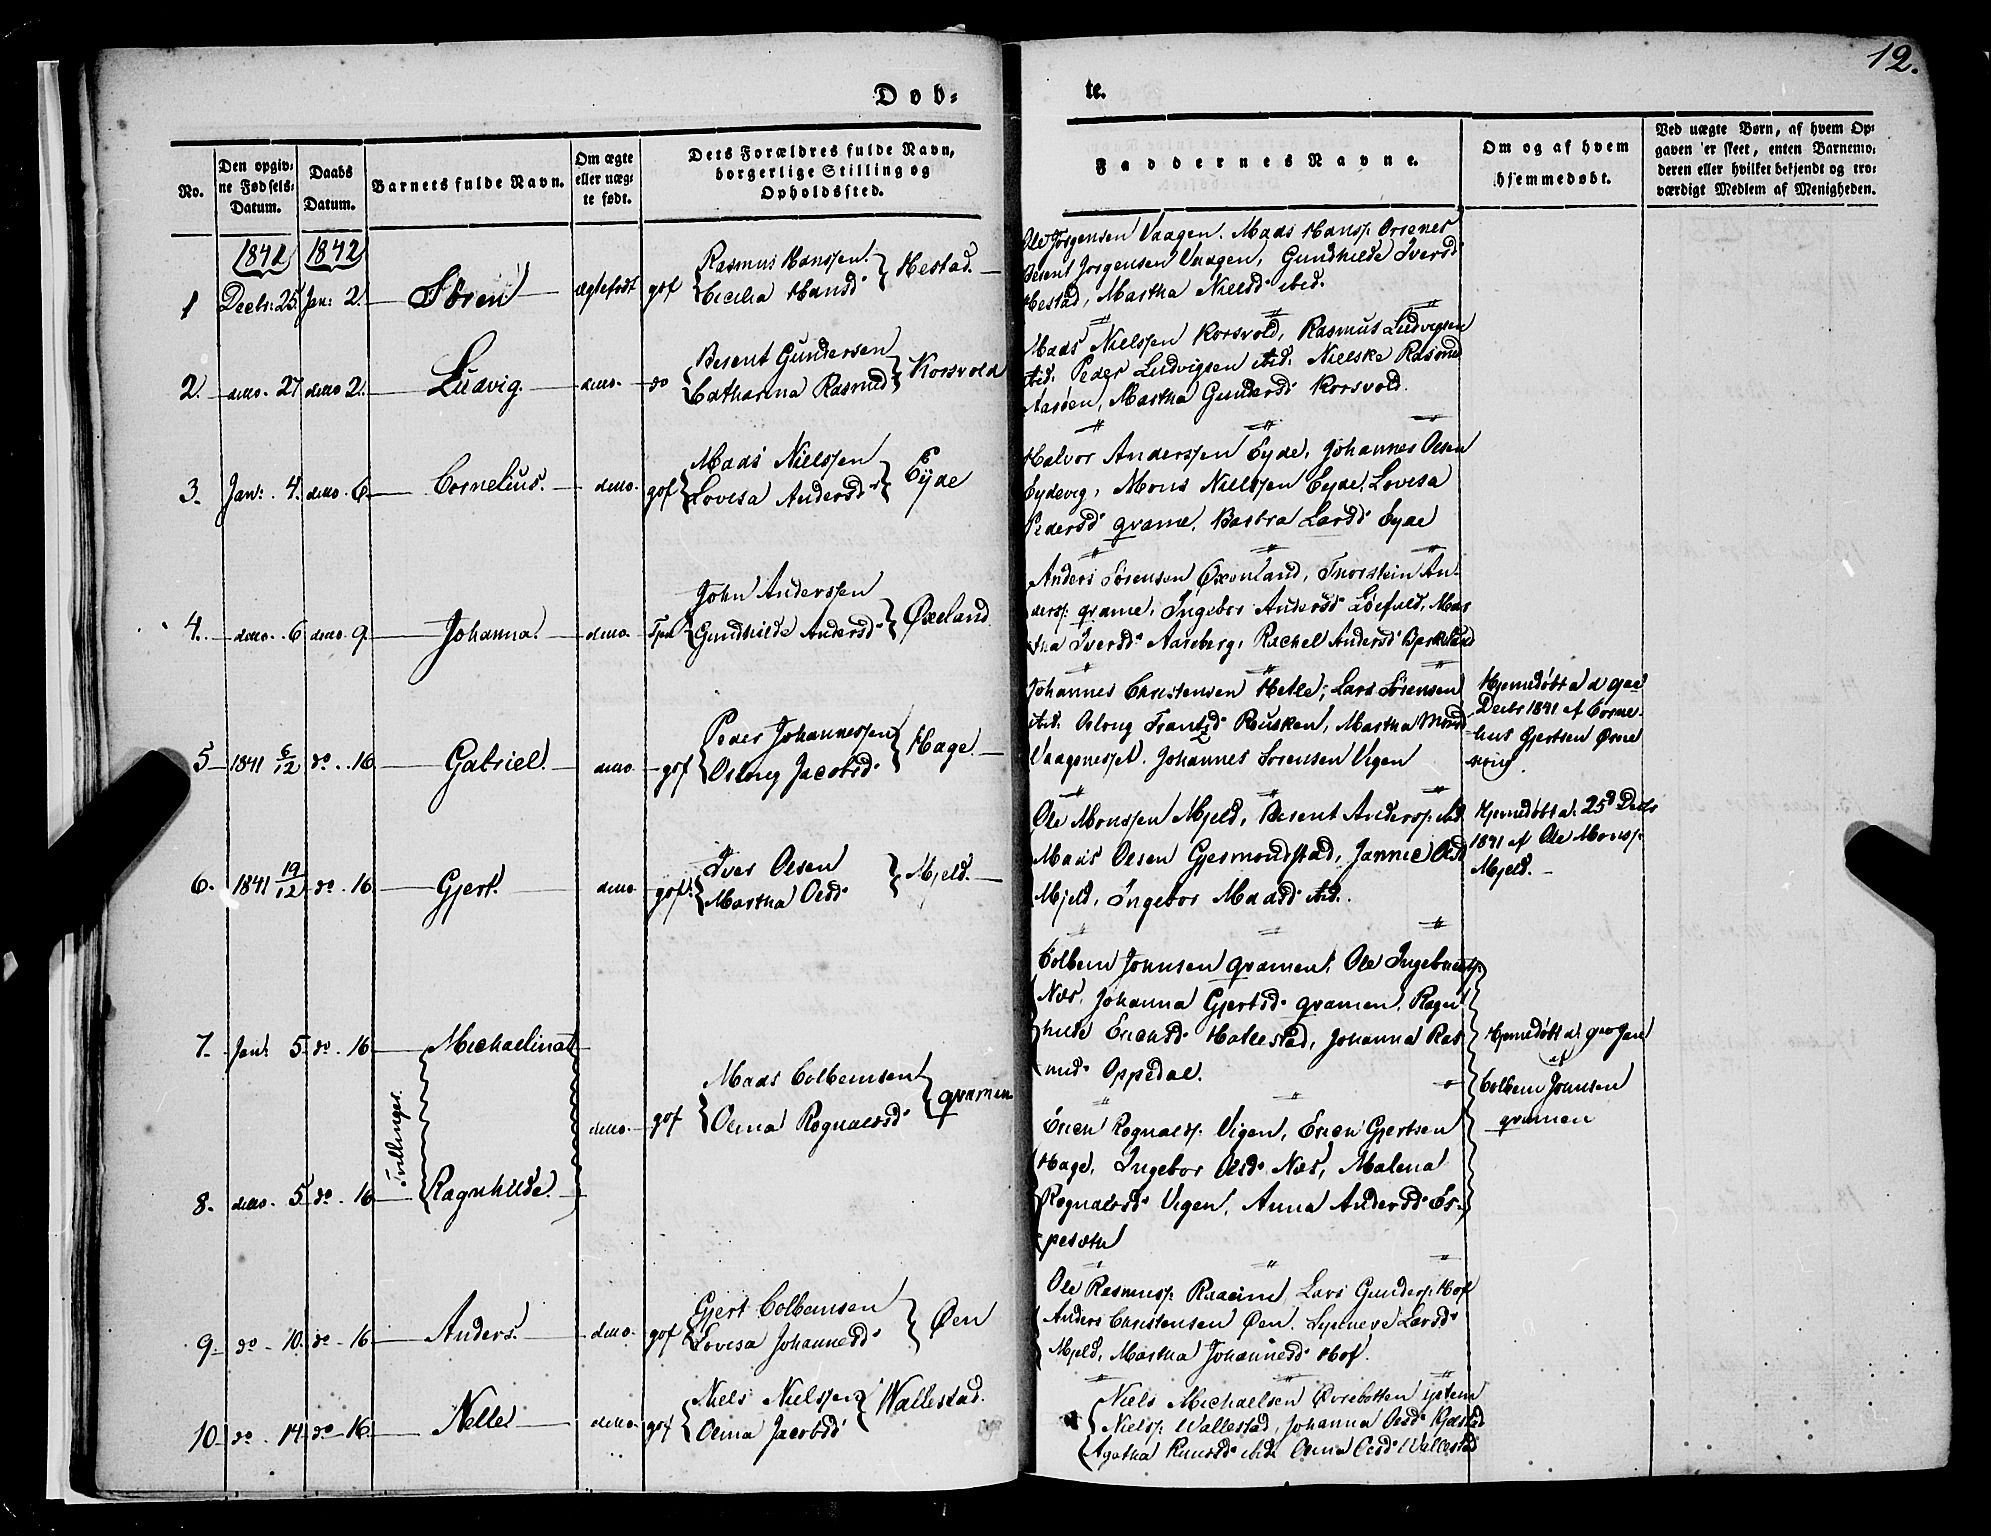 12.
Døb-
te.
No.
Den opgiv-
ne Fødsels-
Datum.
Daabs
Datum.
Barnets fulde Navn.
Om ægte
eller uæg-
te født.
Dets Forældres fulde Navn,
borgerlige Stilling og
Opholdssted.
Faddernes Navne.
Om og af hvem
hjemmedøbt.
Ved uægte Børn, af hvem Op-
gaven er skeet, enten Barnemo-
deren eller hvilket bekjendt og tro-
værdigt Medlem af Menigheden.
1841 1842
1 Decbr: 25 Jan: 2. Søren ægtefødt gbf Rasmus Hanssen Cicilia Hansd: Hestad.
Ole Jørgensen Vaagen. Mads Hanss:
Besent Jørgensen Vaagen, Gundhilde Iversd:
Hestad, Martha Nielsd: ibid.
2. detto. 27 detto 2. Ludvig. detto. do Besent Gundersen Catharina Rasmd Korsvold
Mads Nielssen Korsvold, Rasmus Ludvigsen
ibid. Peder Ludvigsen ibid. Nielske Rasmd
Aasøen, Martha Gundersd: Korsvold.
3. Jan: 4. detto 6. Cornelius. detto. gbf Mads Nielssen Lovisa Andersd: Eyde
Halvor Anderssen Eyde, Johannes Olsen
Eydevig, Mons Nielssen Eyde, Lovisa
Pedersd: qvame, Barbra Larsd: Eyde
4. detto. 6 detto. 9 Johanna. detto. John Anderssen Gundhilde Andersd: Øxeland
Anders Sørensen Øxenland, Thorstein An-
derss: qvame, Ingebor Andersd: Mar-
tha Iversd: Aareberg, Rachel Andersd:
5 1841 6/12 do. 16 Gabriel. detto gbf Peder Johannessen Oslong Jacobsd: Hage.
Johannes Christensen Hetle, Lars Sørensen
ibid. Oslong Frantsd: Reusken, Martha Monsd
Vaagenesset. Johannes Sørensen Vigen
Hjemedøbt d
Decbr 1841 af Corne-
lius Gjertsen
6. 1841 19/12 do. 16 Gjert. detto gbf. Iver Olsen Martha Olsd: Mjeld.
Ole Monssen Mjeld, Besent Anderss: ibid.
Mads Olsen Gjesmondstad, Jannic Olsd
Mjeld, Ingebor Madsd: ibid.
Hjemedøbt d. 25d Decbr
1841 af Ole Monss:
Mjeld.
7. Jan: 5. do. 16 Michaelina
Colbein Johnsen qvamen, Ole Ingebrets:
Næs, Johanna Gjertsd: qvamen, Ragn-
hilde Erichsd: Hatlestad, Johanna Ras-
musd: Oppedal.
Tvillinger.
detto. gbf Mads Colbeinsen Olina Rognalsd: qvamen
Hjemedøbt d. Jan
af
Colbein Johnsen
qvamen
8. detto. 5 do. 16 Ragnhilde.
Erich Rognalss: Vigen, Erich Gjertsen
Hage, Ingebor Olsd: Næs, Malena
Rognalsd: Vigen, Anna Andersd Es-
peseth
9. do. 10. do. 16 Anders. detto. gbf Gjert Colbeinsen Lovisa Johannesd: Øen
Ole Rasmuss: Lars Gunders: Hof
Anders Christensen Øen. Synneve Larsd:
Mjeld, Martha Johannesd: Hof.
10. do. 14. do. 16. Nelle detto gbf Niels Nielssen Olina Jacobsd Wallestad.
Niels Michaelsen Øvrebotten
Nielss: Wallestad, Johanna Olsd:
Agatha Knudsd: ibid: Olina Olsd: Wallestad